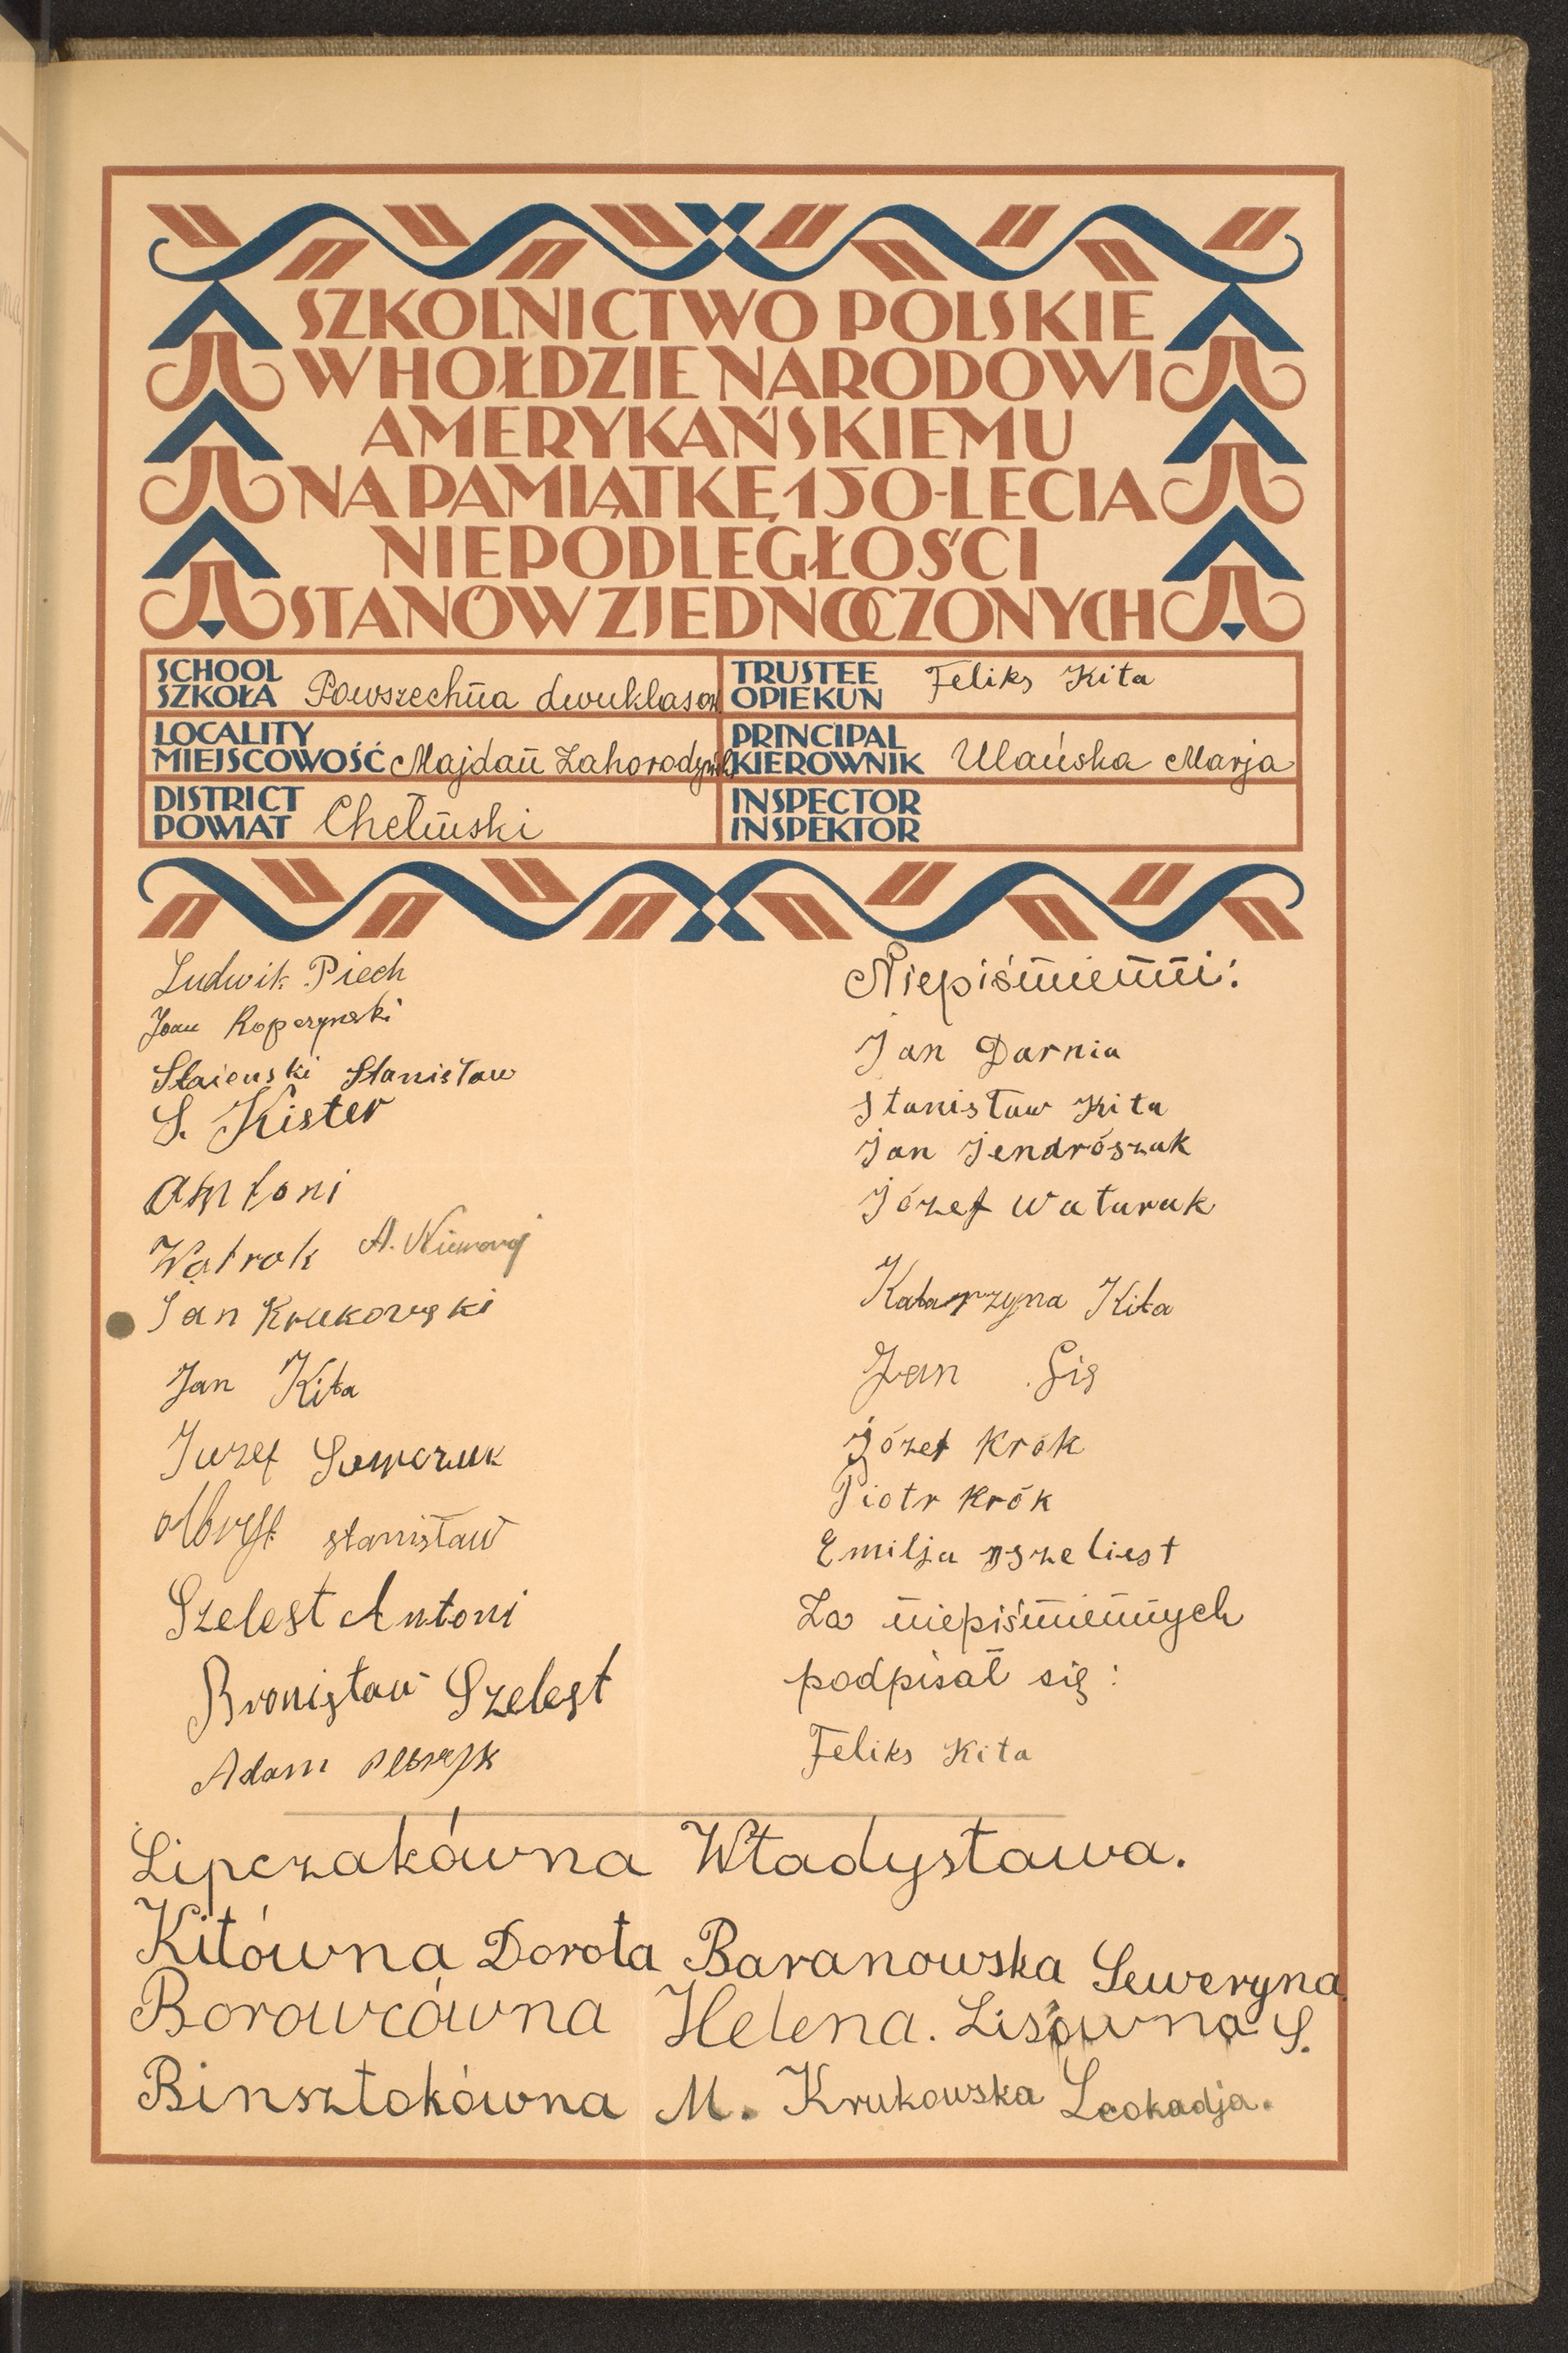 SZKOLNICTWO POLSKIE
W HOŁDZIE NARODOWI
AMERYKAŃSKIEMU
NA PAMIĄTKĘ 150-LECIA
NIEPODLEGŁOŚCI
STANÓW ZJEDNOCZONYCH
SCHOOL
SZKOŁA Powszechna dwuklasow.
TRUSTEE
OPIEKUN Feliks Kita
LOCALITY
MIEJSCOWOŚĆ Majdan
PRINCIPAL
KIEROWNIK Ulańska Marja
DISTRICT
POWIAT Chełmski
INSPECTOR
INSPEKTOR
Ludwik Piech
Jean Roperzynski
Stanisław
S. Kister
Antoni
Wątrok A.
Jan Krukowski
Jan Kita
Juzef Sawczuk
Stanisław
Szelest Antoni
Bronisław Szelest
Adam
Niepiśmienni:
Jan Darnia
Stanisław Kita
Jan Jendrószak
Józef Waturuk
Katarzyna Kita
Jan Gis
Józef Krók
Piotr Krók
Emilja
Za niepiśmiennych
podpisał się:
Feliks Kita
Lipczakówna Władysława.
Kitówna Dorota Baranowska Seweryna
Borowcówna Helena. Lisówna S.
Binsztokówna M. Krukowska Leokadja.